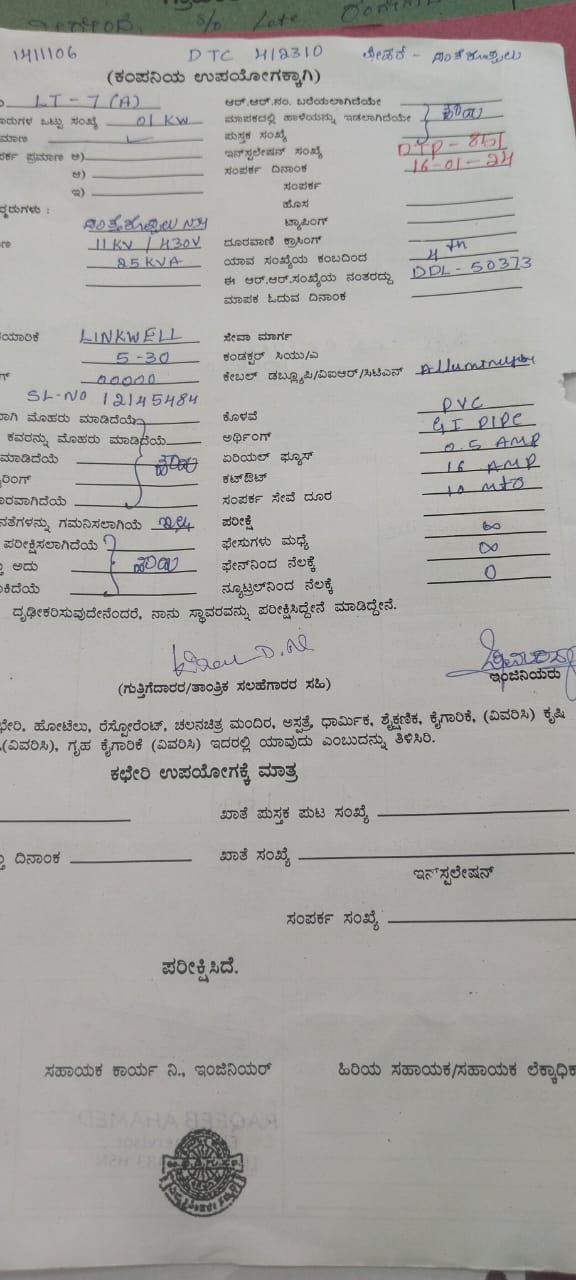 S/o Late
1411106 DTC 412310
(ಕಂಪನಿಯ ಉಪಯೋಗಕ್ಕಾಗಿ)
LT-7(A) ಆರ್.ಆರ್.ನಂ. ಬರೆಯಲಾಗಿದೆಯೇ
ಾರುಗಳ ಒಟ್ಟು ಸಂಖ್ಯೆ 01 KW ಮಾಪಕದಲ್ಲಿ ಹಾಳೆಯನ್ನು ಇಡಲಾಗಿದೆಯೇ ಹೌದು
ಮಾಣ ಪುಸ್ತಕ ಸಂಖ್ಯೆ
ರ್ಕ ಪ್ರಮಾಣ ಅ) ಇನ್‌ಸ್ಟಲೇಷನ್ ಸಂಖ್ಯೆ DTP-851
ಆ) ಸಂಪರ್ಕ ದಿನಾಂಕ 16-01-24
ಇ) ಸಂಪರ್ಕ
ಹೊಸ
ದ್ದರುಗಳು : ಟ್ಯಾಪಿಂಗ್
11KV / 430V ದೂರವಾಣಿ ಕ್ರಾಸಿಂಗ್
25 KVA ಯಾವ ಸಂಖ್ಯೆಯ ಕಂಬದಿಂದ 4th
ಈ ಆರ್.ಆರ್.ಸಂಖ್ಯೆಯ ನಂತರದ್ದು DDL-50373
ಮಾಪಕ ಓದುವ ದಿನಾಂಕ
ಯಾರಿಕೆ LINKWELL ಸೇವಾ ಮಾರ್ಗ
5-30 ಕಂಡಕ್ಟರ್ ಸಿಯು/ಎ
ಗ್ 00000 ಕೇಬಲ್ ಡಬ್ಲ್ಯೂಪಿ/ವಿಐಆರ್/ಸಿಟಿಎಸ್
SL-NO 12145484
ಾಗಿ ಮೊಹರು ಮಾಡಿದೆಯೆ ಕೊಳವೆ PVC
ಕವರನ್ನು ಮೊಹರು ಮಾಡಿದೆಯೆ ಅರ್ಥಿಂಗ್ GI PIPE
ಮಾಡಿದೆಯೆ ಹೌದು ಏರಿಯಲ್ ಫ್ಯೂಸ್ 0.5 AMP
ರಿಂಗ್ ಕಟ್‌ಔಟ್ 16 AMP
ಾರವಾಗಿದೆಯೆ ಸಂಪರ್ಕ ಸೇವೆ ದೂರ 10 Mts
ನತೆಗಳನ್ನು ಗಮನಿಸಲಾಗಿಯೆ ಇಲ್ಲ ಪರೀಕ್ಷೆ
ಪರೀಕ್ಷಿಸಲಾಗಿದೆಯೆ ಫೇಸುಗಳು ಮಧ್ಯೆ ∞
ಅದು ಹೌದು ಫೇಸ್‌ನಿಂದ ನೆಲಕ್ಕೆ ∞
ಕಿದೆಯೆ ನ್ಯೂಟ್ರಲ್‌ನಿಂದ ನೆಲಕ್ಕೆ 0
ದೃಢೀಕರಿಸುವುದೇನೆಂದರೆ, ನಾನು ಸ್ಥಾವರವನ್ನು ಪರೀಕ್ಷಿಸಿದ್ದೇನೆ ಮಾಡಿದ್ದೇನೆ.
(ಗುತ್ತಿಗೆದಾರರ/ತಾಂತ್ರಿಕ ಸಲಹೆಗಾರರ ಸಹಿ) ಇಂಜಿನಿಯರು
ಛೇರಿ, ಹೋಟೆಲು, ರೆಸ್ಟೋರೆಂಟ್, ಚಲನಚಿತ್ರ ಮಂದಿರ, ಅಸ್ಪತ್ರೆ, ಧಾರ್ಮಿಕ, ಶೈಕ್ಷಣಿಕ, ಕೈಗಾರಿಕೆ, (ವಿವರಿಸಿ) ಕೃಷಿ
(ವಿವರಿಸಿ), ಗೃಹ ಕೈಗಾರಿಕೆ (ವಿವರಿಸಿ) ಇದರಲ್ಲಿ ಯಾವುದು ಎಂಬುದನ್ನು ತಿಳಿಸಿರಿ.
ಕಛೇರಿ ಉಪಯೋಗಕ್ಕೆ ಮಾತ್ರ
ಖಾತೆ ಪುಸ್ತಕ ಪುಟ ಸಂಖ್ಯೆ
ದಿನಾಂಕ ಖಾತೆ ಸಂಖ್ಯೆ
ಇನ್‌ಸ್ಟಲೇಷನ್
ಸಂಪರ್ಕ ಸಂಖ್ಯೆ
ಪರೀಕ್ಷಿಸಿದೆ.
ಸಹಾಯಕ ಕಾರ್ಯ ನಿ., ಇಂಜಿನಿಯರ್ ಹಿರಿಯ ಸಹಾಯಕ/ಸಹಾಯಕ ಲೆಕ್ಕಾಧಿಕ